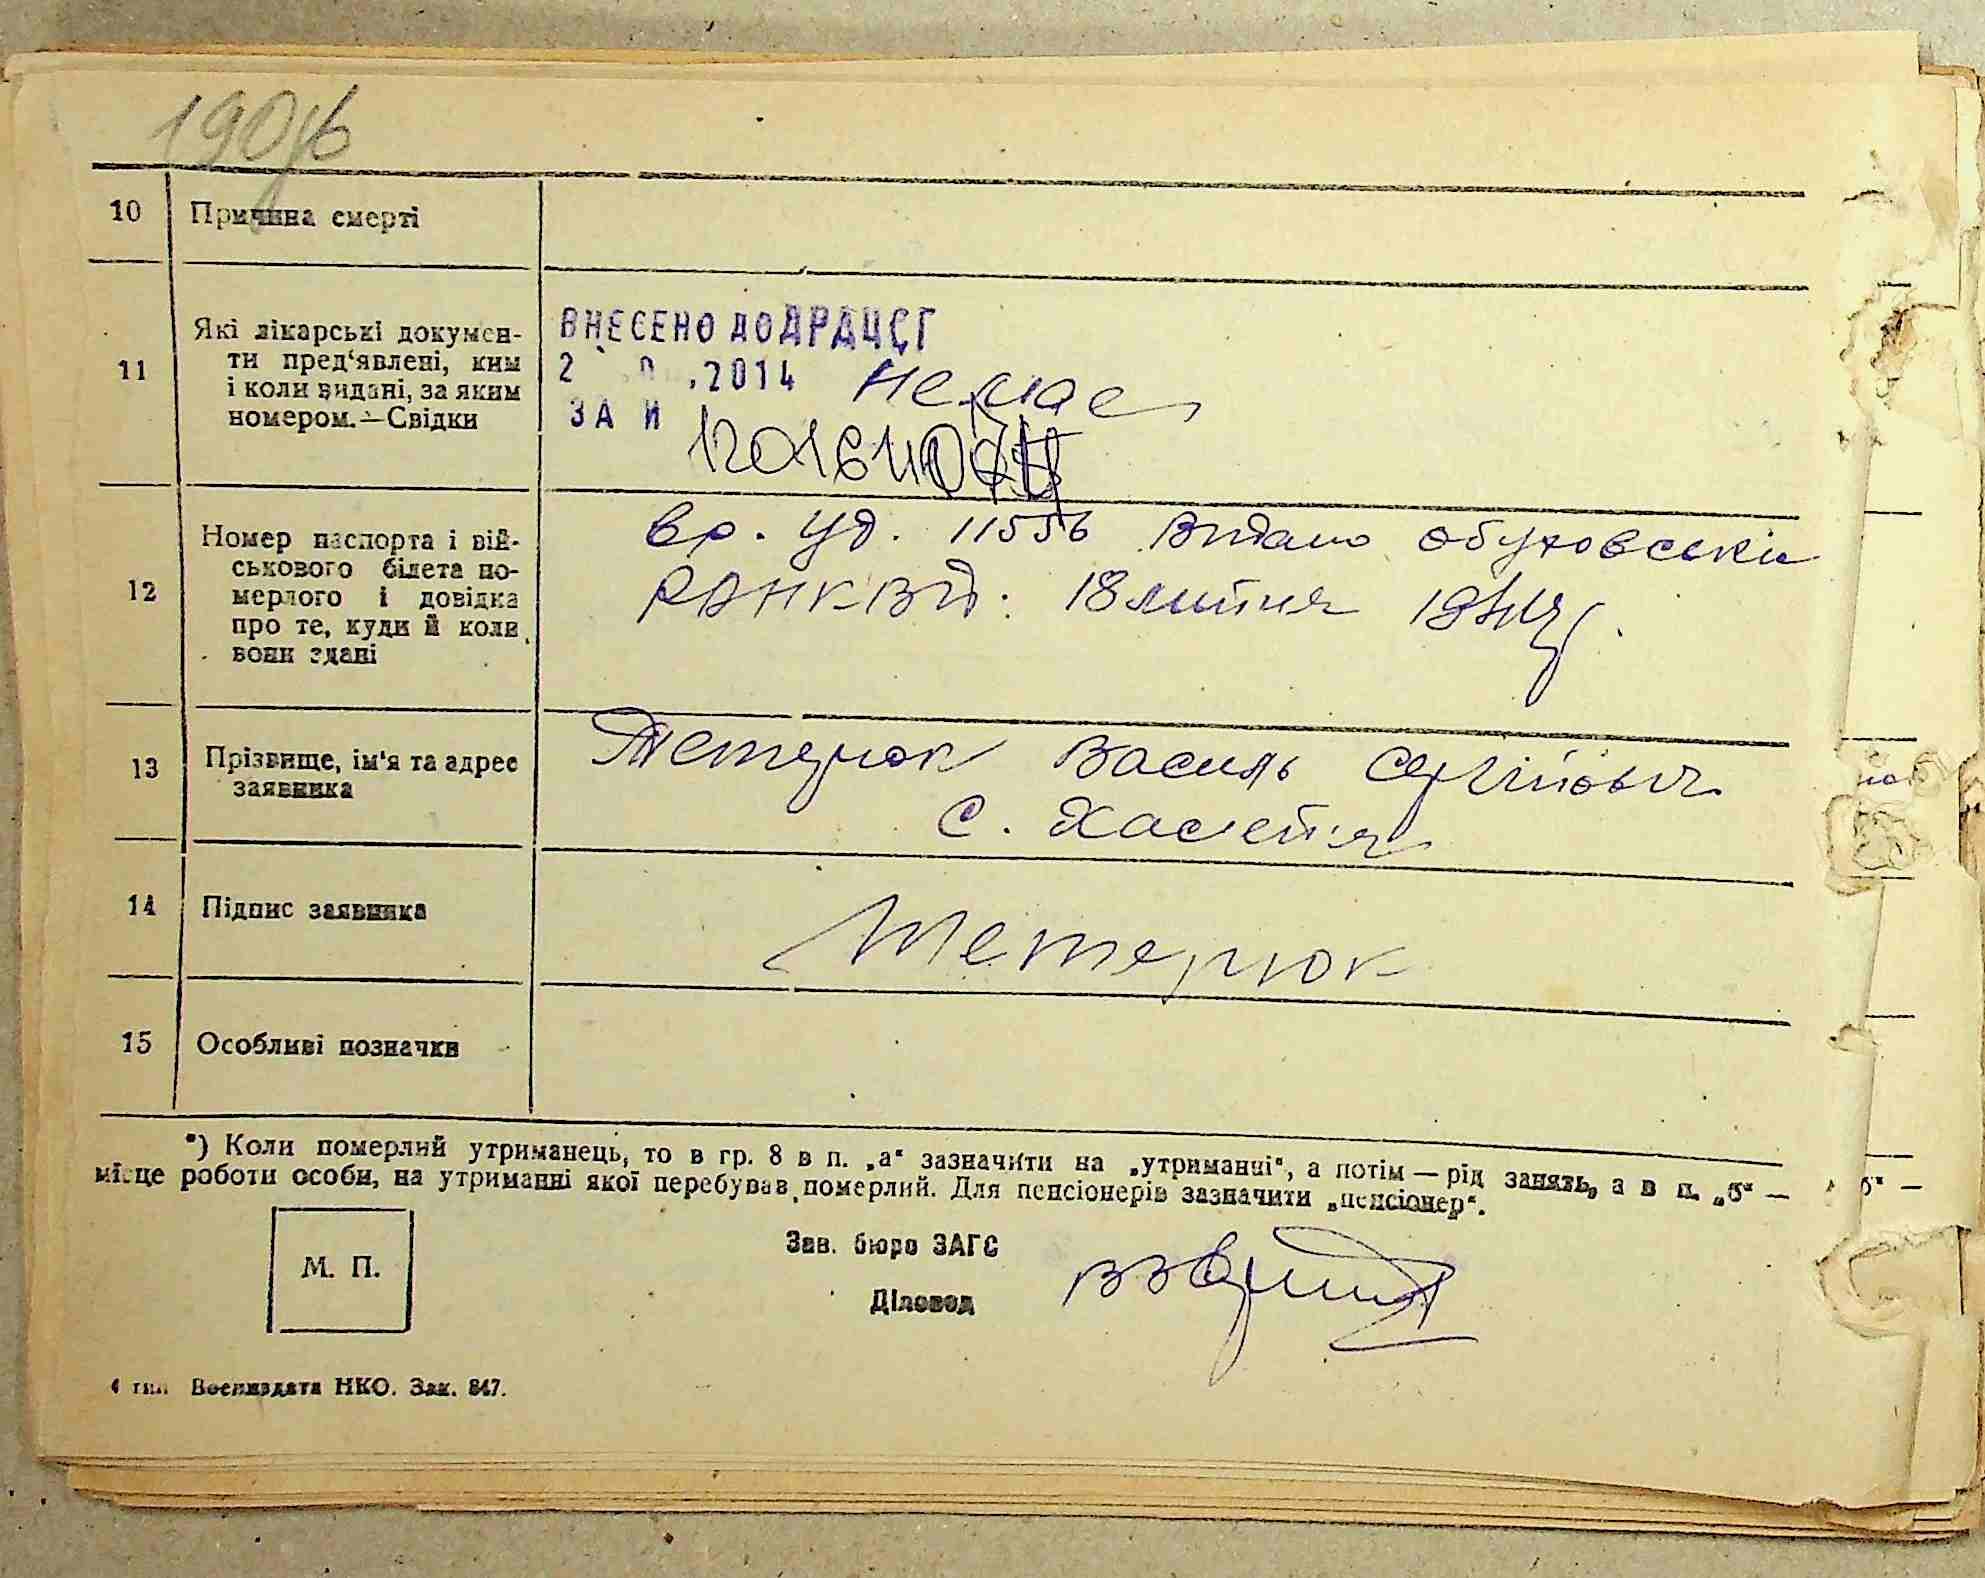 10 Причина смерті
11 Які лікарські докумен-
ти пред‘явлені, ким
і коли видані, за яким
номером.—Свідки
ВНЕСЕНО ДО ДРАЦСГ
2 .2014 немає
ЗА И
12 Номер паспорта і вій-
ськового білета по-
мерлого і довідка
про те, куди й коли
вони здані
вр. уд. 11556 видано обуховськім
РАНКВД. 18 липня
13 Прізвище, ім'я та адрес
заявника
Тетерюк Василь Сергійович
с.
14 Підпис заявника
Тетерюк
15 Особливі позначки
*) Коли померлий утриманець, то в гр. 8 в п. „а“ зазначити на „утриманні“, а потім — рід занять, а в п. „б“ —
місце роботи особи, на утриманні якої перебував померлий. Для пенсіонерів зазначити „пенсіонер“.
М. П.
Зав. бюро ЗАГС
Діловод
4 тип Воениздата НКО. Зак. 847.